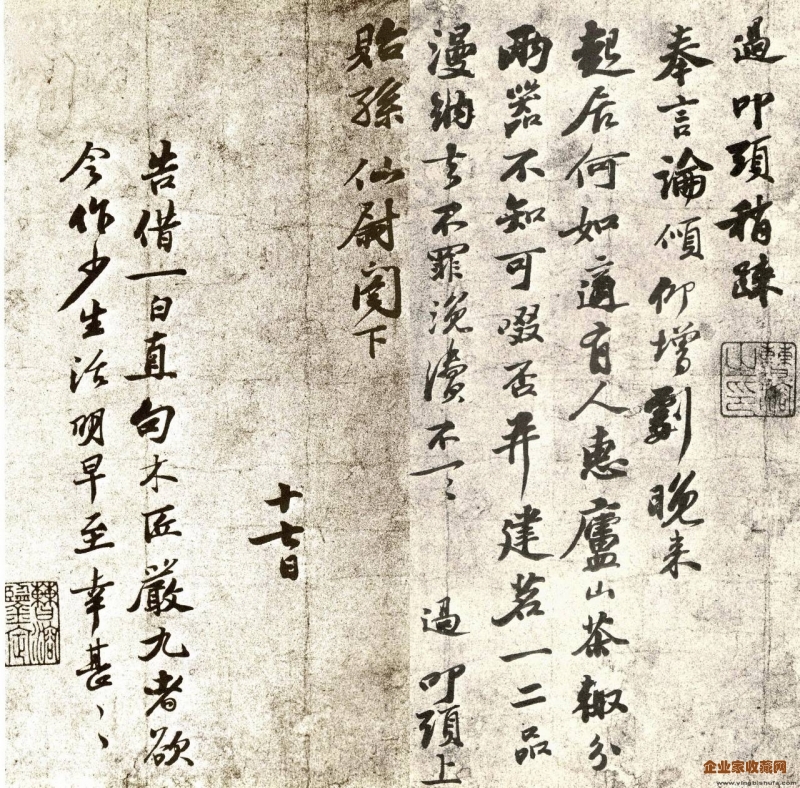 過叩頭稍疎
奉言論傾仰增劇晚来
起居何如適有人惠廬山茶輒分
兩器不知可啜否并建茗一二品
漫納去不罪浼瀆不一一 過叩頭上
貽孫仙尉閤下
十七日
告借一白直句木匠嚴九者欲
令作少生活明早至幸甚〻
曹溶
鑒定
企业家收藏网
www.yingbishufa.com